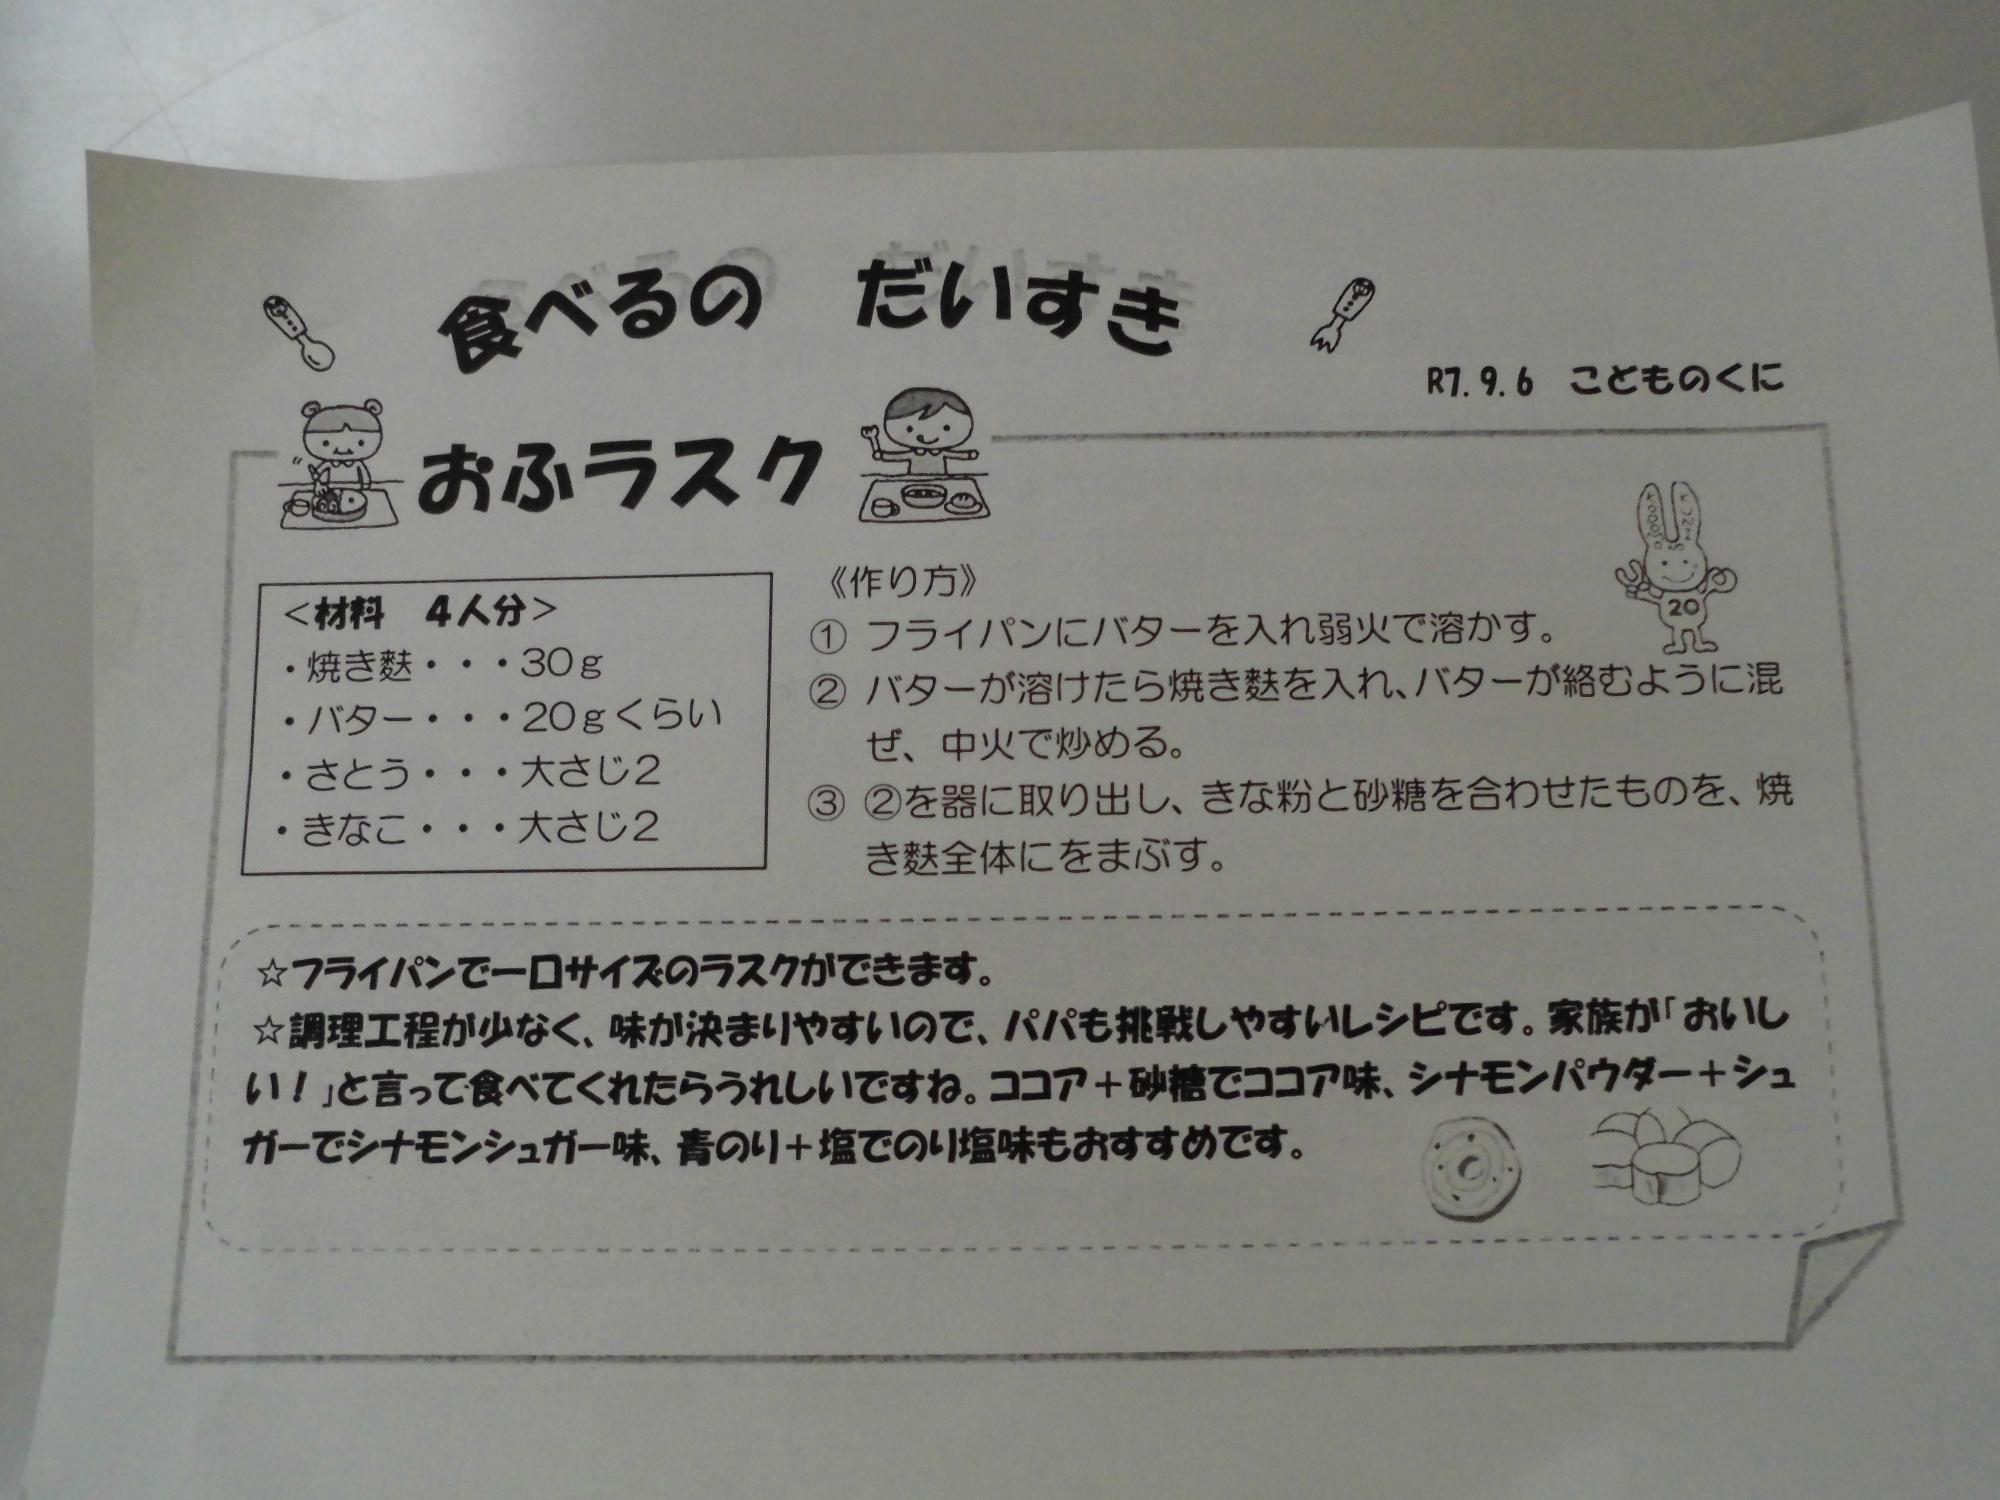 食べるの　だいすき
R7.9.6　こどものくに
おふラスク
＜材料　４人分＞
・焼き麩・・・30ｇ
・バター・・・20ｇくらい
・さとう・・・大さじ２
・きなこ・・・大さじ２
《作り方》
① フライパンにバターを入れ弱火で溶かす。
② バターが溶けたら焼き麩を入れ、バターが絡むように混
ぜ、中火で炒める。
③ ②を器に取り出し、きな粉と砂糖を合わせたものを、焼
き麩全体にをまぶす。
20
☆フライパンで一口サイズのラスクができます。
☆調理工程が少なく、味が決まりやすいので、パパも挑戦しやすいレシピです。家族が「おいし
い！」と言って食べてくれたらうれしいですね。ココア＋砂糖でココア味、シナモンパウダー＋シュ
ガーでシナモンシュガー味、青のり＋塩でのり塩味もおすすめです。